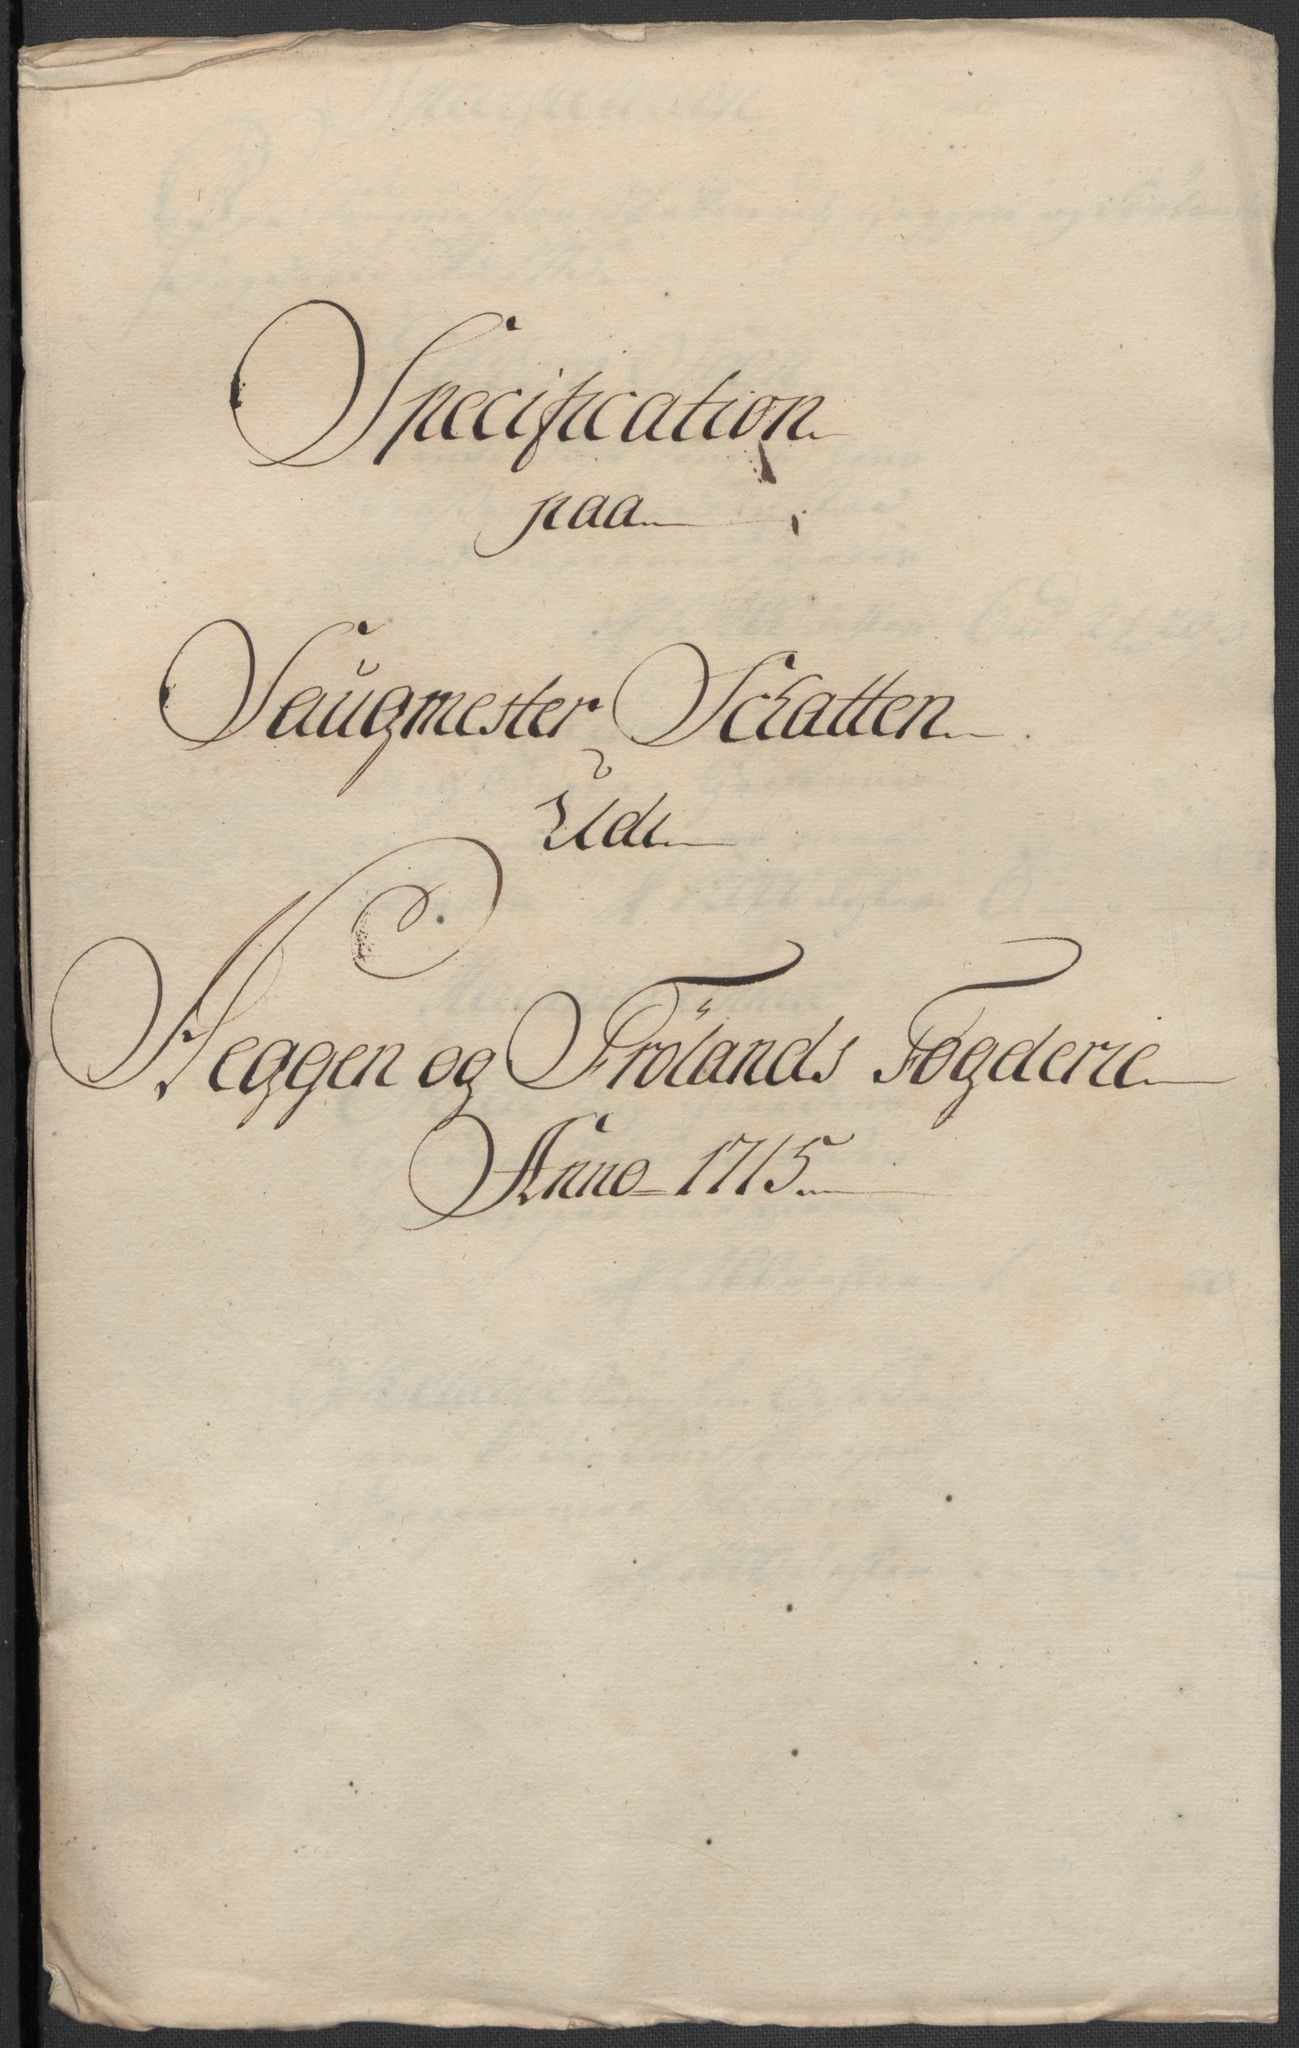 Specification
paa
Saugmester Schatten
Udi
Heggen og Frölands Fogderie
Anno 1715